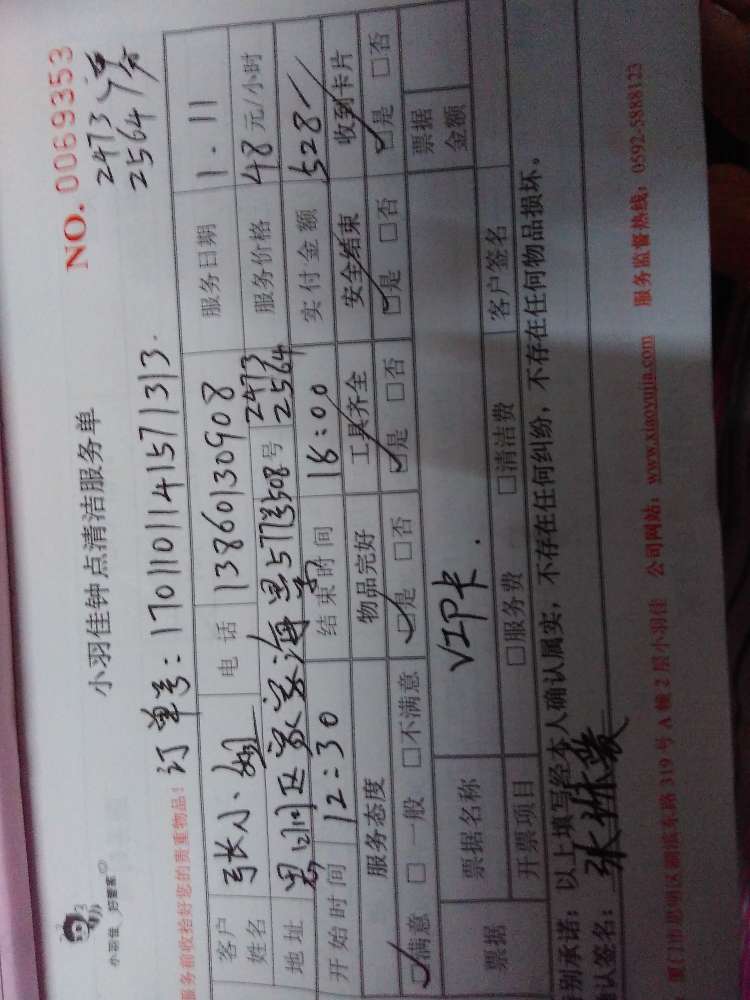 小羽佳 好管家
小羽佳钟点清洁服务单
NO. 0069353
2473
2564
服务前收拾好您的贵重物品!
订单号:1701101141571313.
客户姓名 张小姐 电话 13860130908 服务日期 1.11
地址 思明区 508号 2473 2564 服务价格 48元/小时
开始时间 12:30 结束时间 18:00 实付金额 528
服务态度 物品完好 工具齐全 安全结束 收到卡片
☑满意 □一般 □不满意 ☑是 □否 ☑是 □否 ☑是 □否 ☑是 □否
票据 票据名称 VIP卡. 票据金额
开票项目 □服务费 □清洁费 客户签名
别承诺:以上填写经本人确认属实,不存在任何纠纷,不存在任何物品损坏。
认签名:
厦门市思明区湖滨东路319号A幢2层小羽佳 公司网站:www.xiaoyujia.com 服务监督热线:0592-5888123